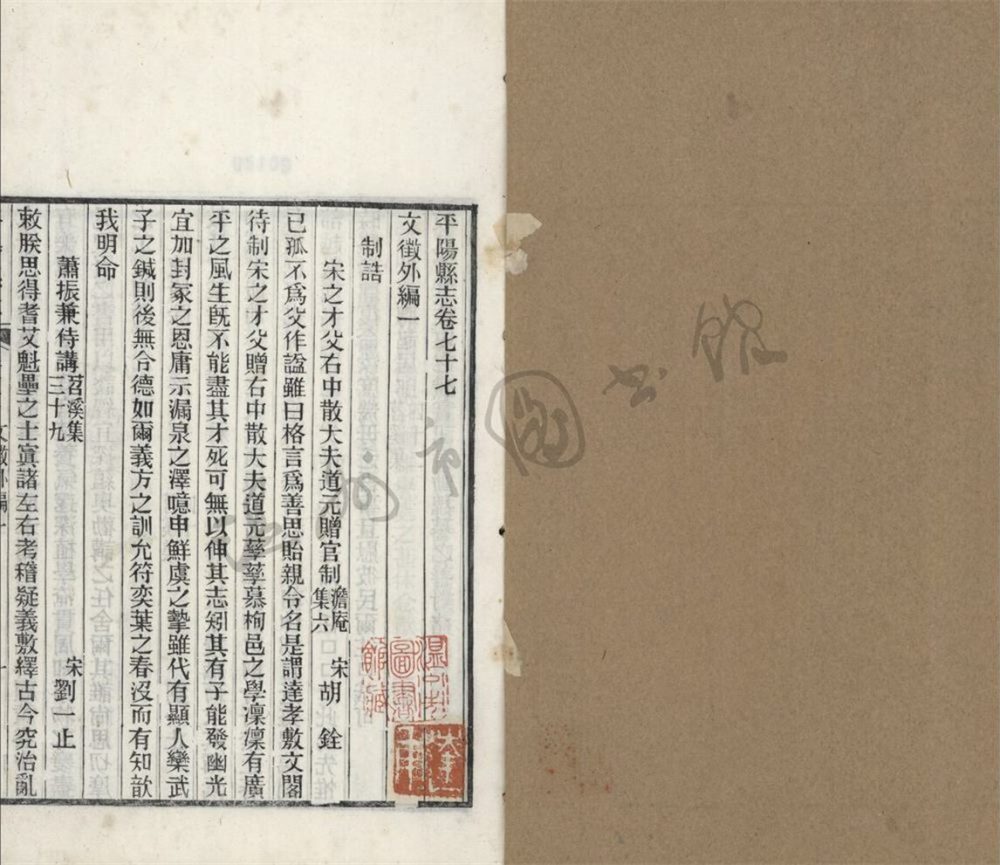 平陽縣志卷七十七
文徵外編一
制誥
宋之才父右中散大夫道元贈官制澹庵集六 宋胡 銓
已孤不爲父作諡雖曰格言爲善思貽親令名是謂達孝敷文閣
待制宋之才父贈右中散大夫道元孳孳慕栒邑之學凜凜有廣
平之風生旣不能盡其才死可無以伸其志矧其有子能發幽光
宜加封冢之恩庸示漏泉之澤噫申鮮虞之摯雖代有顯人欒武
子之鍼則後無合德如爾義方之訓允符奕葉之春沒而有知歆
我明命
蕭振兼侍講苕溪集三十九 宋劉一止
敕朕思得耆艾魁壘之士寘諸左右考稽疑義敷繹古今究治亂
溫州市圖書館藏